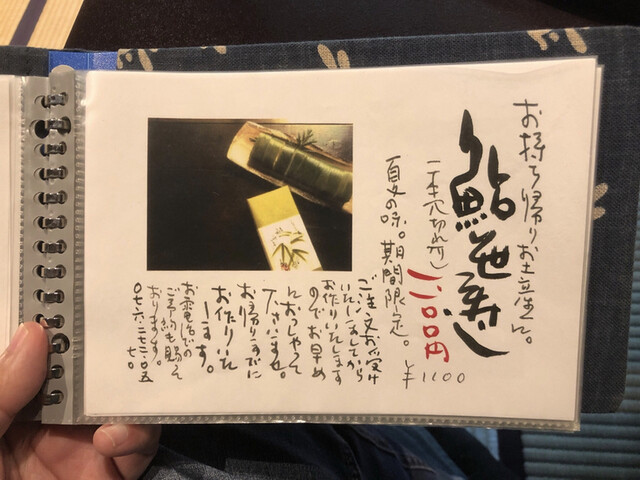 お持ち帰り、お土産に。
鮎世寿し
一本六切れ入り 一、一〇〇円
¥1100
夏の味。期間限定。
ご注文お受け
いたしましてから
お作りいたします
のでお早め
におっしゃって
下さいませ。
お帰りまでに
お作りいた
します。
お電話での
ご予約も賜って
おります。